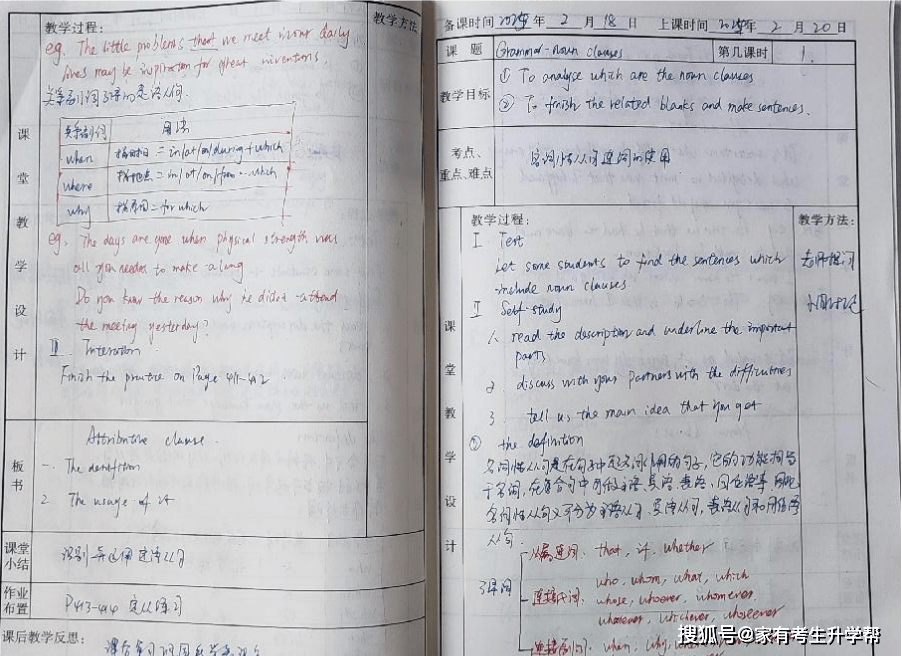 教学过程:
教学方法
eg. The little problems that we meet in our daily
lives may be inspiration for great inventions.
关系副词引导的定语从句
关系副词 用法
when 指时间 = in/at/on/during + which
where 指地点 = in/at/on/from ... which
why 指原因 = for which
eg. The days are gone when physical strength was
all you needed to make a living
Do you know the reason why he didn't attend
the meeting yesterday?
课堂教学设计
Ⅲ. Interaction
Finish the practice on Page 411-412
板书
Attributive clause.
一. The definition
2. The usage of it
课堂小结
识别并运用定语从句
作业布置
P413-414 定从练习
课后教学反思:
备课时间 年 2 月 18 日 上课时间 年 2 月 20 日
课 题 Grammar-noun clauses 第几课时 1.
教学目标
① To analyse which are the noun clauses
② To finish the related blanks and make sentences.
考点、重点、难点
名词性从句连词的使用
教学过程:
教学方法:
Ⅰ Test
Let some students to find the sentences which
include noun clauses.
老师提问
Ⅱ Self-study
小组讨论
1. read the description and underline the important
parts
2. discuss with your partners with the difficulties
3. tell us the main idea that you get
课堂教学设计
① the definition
名词性从句是在句子中起名词作用的句子,它的功能相当
于名词,在复合句中可作主语、宾语、表语、同位语等,因此
名词性从句又可分为主语从句、宾语从句、表语从句和同位语
从句.
引导词
从属连词: that, if, whether
连接代词: who, whom, what, which
whose, whoever, whomever,
whatever, whichever, whosever
连接副词: when, why,
搜狐号@家有考生升学帮